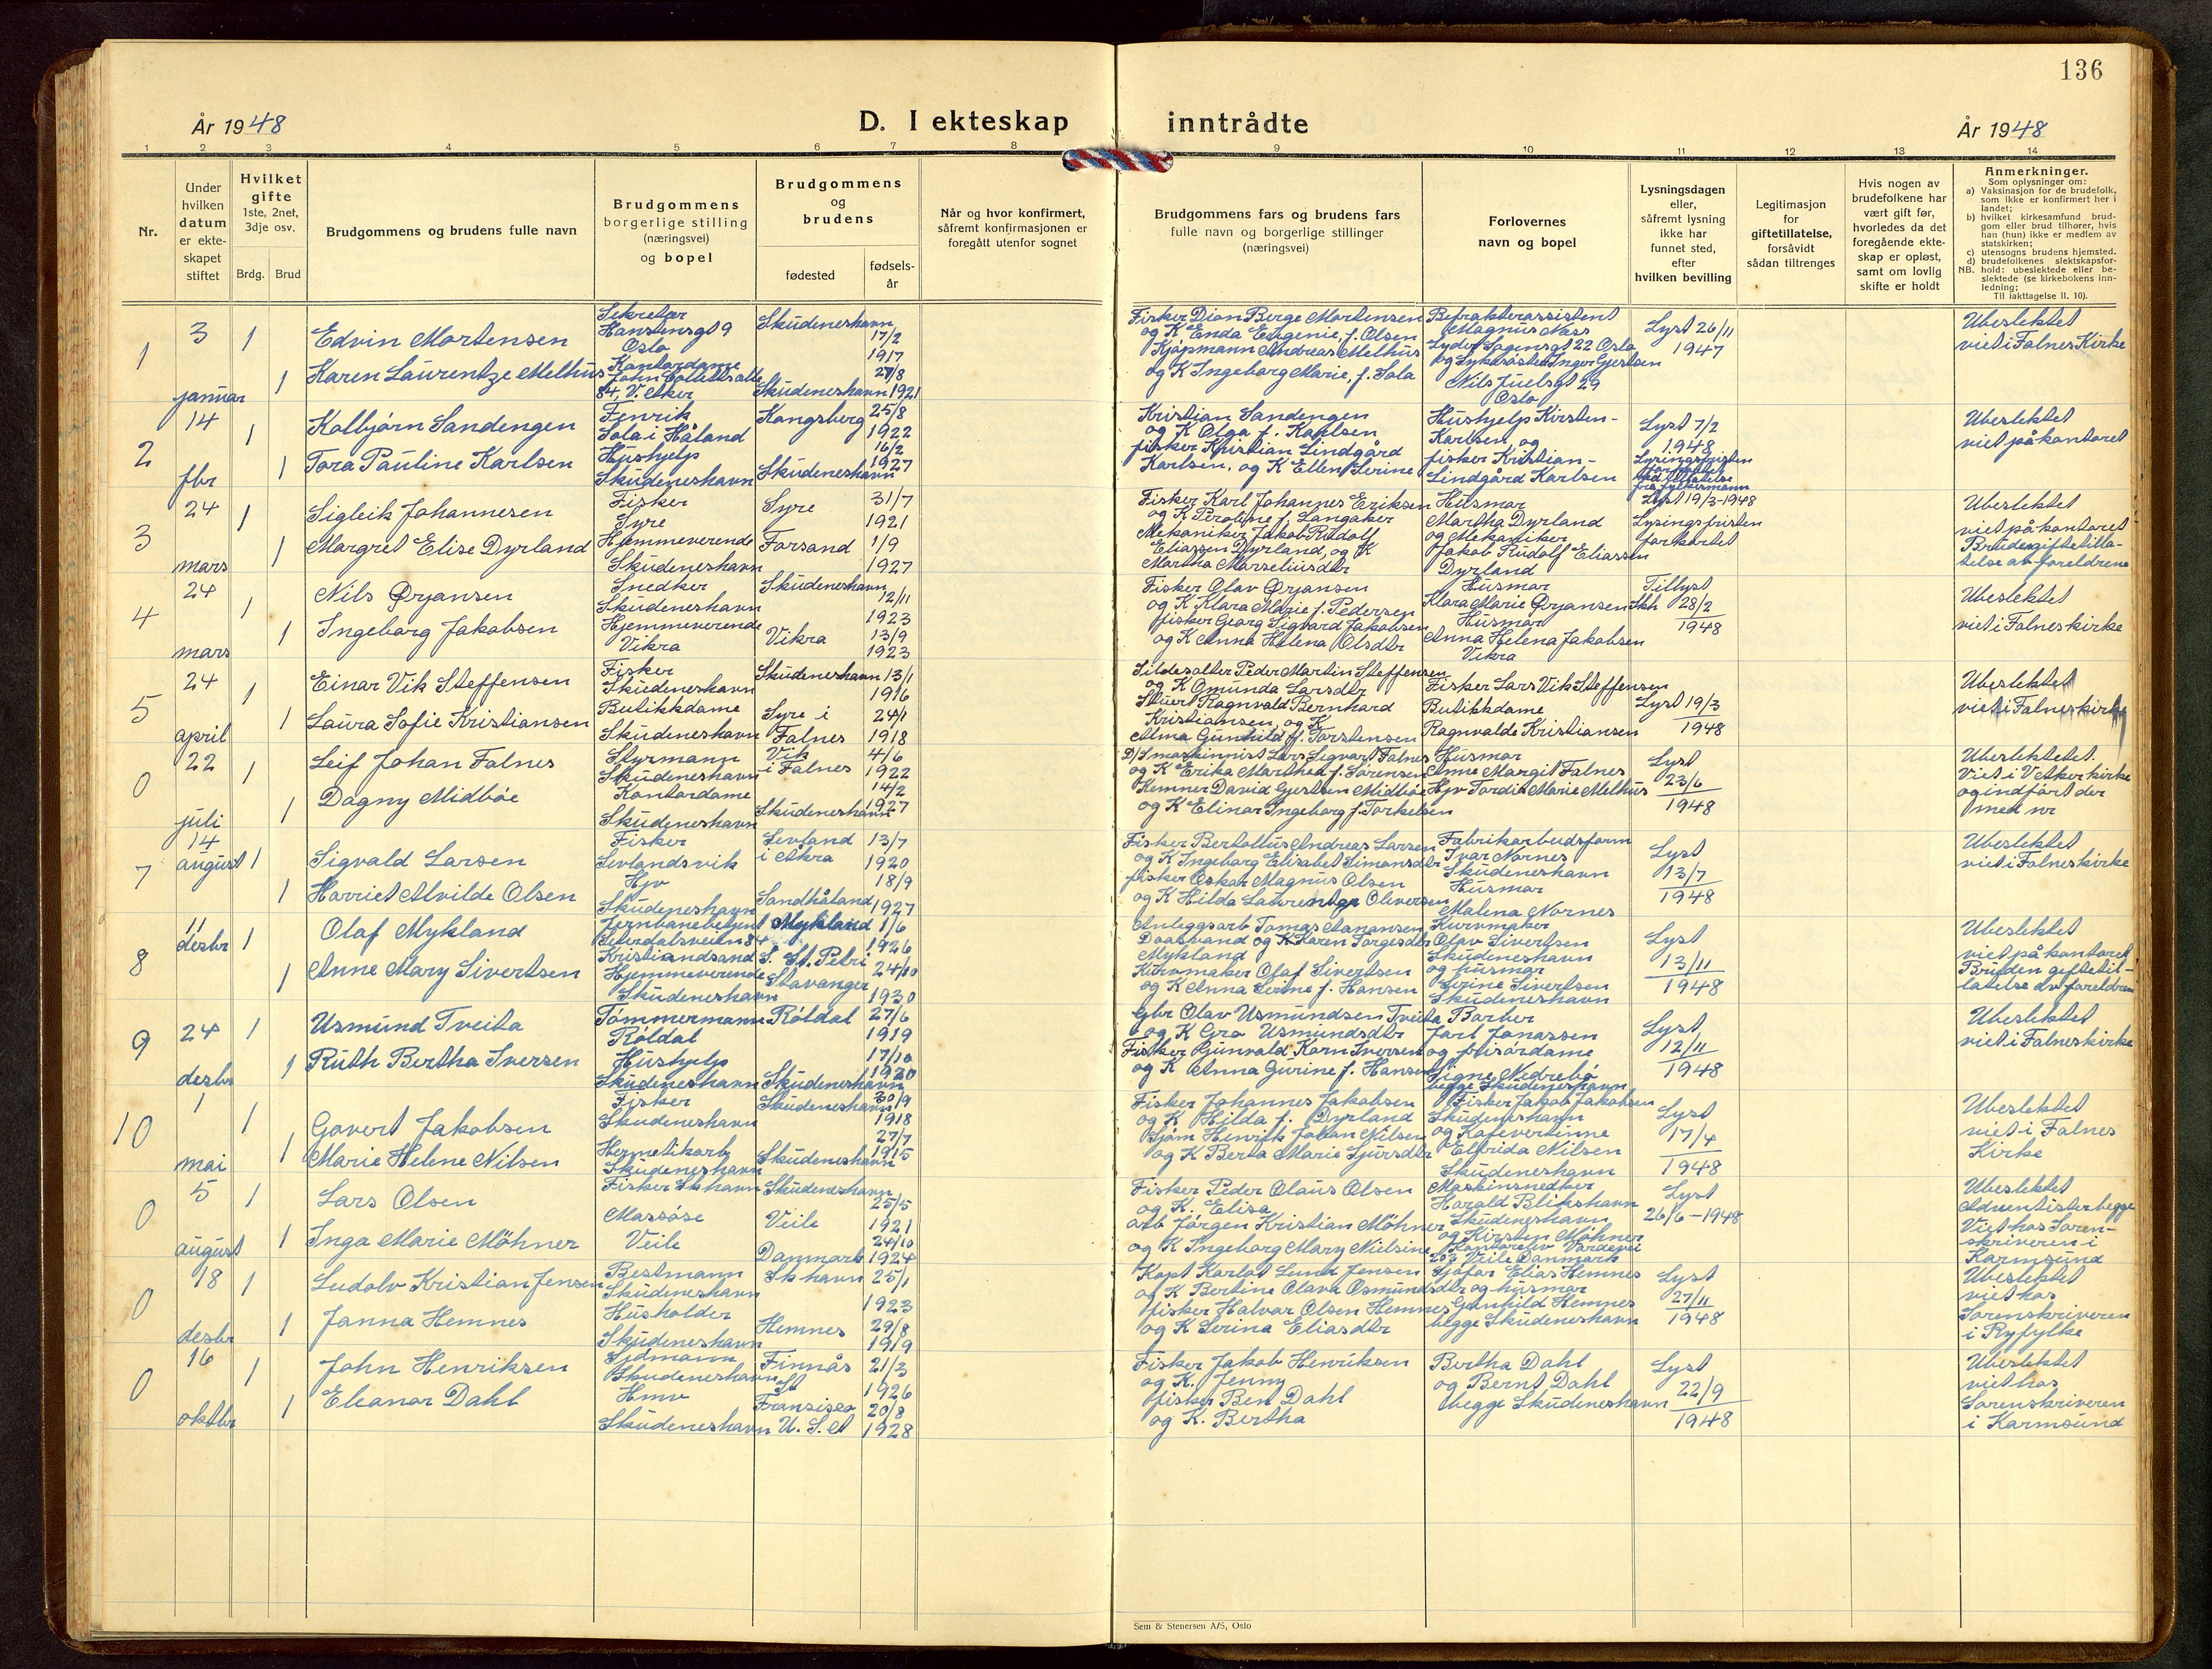 136
År 1948
D. I ekteskap inntrådte
År 1948
1 2 3 4 5 6 7 8 9 10 11 12 13 14
Nr.
Under
hvilken
datum
er ekte-
skapet
stiftet
Hvilket
gifte
1ste, 2net,
3dje osv.
Brdg. Brud
Brudgommens og brudens fulle navn
Brudgommens
borgerlige stilling
(næringsvei)
og bopel
Brudgommens
og
brudens
fødested
fødsels-
år
Når og hvor konfirmert,
såfremt konfirmasjonen er
foregått utenfor sognet
Brudgommens fars og brudens fars
fulle navn og borgerlige stillinger
(næringsvei)
Forlovernes
navn og bopel
Lysningsdagen
eller,
såfremt lysning
ikke har
funnet sted,
efter
hvilken bevilling
Legitimasjon
for
giftetillatelse,
forsåvidt
sådan tiltrenges
Hvis nogen av
brudefolkene har
vært gift før,
hvorledes da det
foregående ekte-
skap er opløst,
samt om lovlig
skifte er holdt
Anmerkninger.
Som oplysninger om:
a) Vaksinasjon for de brudefolk,
som ikke er konfirmert her i
landet;
b) hvilket kirkesamfund brud-
gom eller brud tilhører, hvis
han (hun) ikke er medlem av
statskirken;
c) utensogns brudens hjemsted.
d) brudefolkenes slektskapsfor-
NB. hold: ubeslektede eller be-
slektede (se kirkebokens inn-
ledning;
Til iakttagelse II. 10).
1
3
januar
1
1
Edvin Mortensen
Karen Laurentze Melhus
Sekretær
Hanstensgt 9
Oslo
Kontordame
84, V. Aker
Skudeneshavn
17/2
1917
27/8
Skudeneshavn 1921
Fisker Dion Berge Mortensen
og K Enda Eugenie, f. Olsen
Kjøpmann Andreas Melhus
og K Ingeborg Marie, f. Sola
Befrakterassistent
Magnus Næss
Lyder Sagensgt 22 Oslo
og Sykesøster Inger Gjertsen
Nils Juelsgt 29
Oslo
Lyst 26/11
1947
Ubeslektet
viet i Falnes Kirke
2
14
fbr
1
1
Kolbjørn Sandengen
Tora Pauline Karlsen
Fenrik
Sola i Håland
Hushjelp
Skudeneshavn
Kongsberg
25/8
1922
16/2
1927
Skudeneshavn
Kristian Sandengen
og K Olga f. Karlsen
fisker Kristian Lindgård
Karlsen, og K Ellen Serine
Hushjelp Kirsten-
Karlsen, og
fisker Kristian-
Lindgård Karlsen
Lyst 7/2
1948
Lysingsfristen
forkortet
med tillatelse
fra fylkesmann
Ubeslektet
viet på kontoret
3
24
mars
1
1
Sigleik Johannesen
Margret Elise Dyrland
Fisker
Syre
Hjemmeverende
Skudeneshavn
Syre
Forsand
31/7
1921
1/9
1927
Fisker Karl Johannes Eriksen
og K Peroline f. Langaker
Mekaniker Jakob Rudolf
Eliassen Dyrland, og K
Martha Marseliusdtr
Husmor
Martha Dyrland
og Mekaniker
Jakob Rudolf Eliassen
Dyrland
Lyst 19/3-1948
Lysingsfristen
forkortet
Ubeslektet
viet på kontoret
Brudens giftetilla-
telse av foreldrene
4
24
mars
1
1
Nils Ørjansen
Ingeborg Jakobsen
Snedker
Skudeneshavn
Hjemmeverende
Vikra
Skudeneshavn
12/11
1923
Vikra
13/9
1923
Fisker Olav Ørjansen
og K Klara Marie f. Pedersen
fisker Georg Sigvard Jakobsen
og K Anna Helena Olsdtr
Husmor
Klara Marie Ørjansen Skh
Husmor
Anna Helena Jakobsen
Vikra
Tillyst
28/2
1948
Ubeslektet
viet i Falnes kirke
5
24
april
1
1
Einar Vik Steffensen
Laura Sofie Kristiansen
Fisker
Skudeneshavn
Butikkdame
Skudeneshavn
Skudeneshavn
13/1
1916
Syre i
Falnes
24/1
1918
Sildesalter Peder Martin Steffensen
og K Omunda Larsdtr
Stuert Ragnvald Bernhard
Kristiansen, og K
Alma Gunhild f. Torstensen
Fisker Lars Vik Steffensen
Butikkdame
Ragnvalde Kristiansen
Lyst 19/3
1948
Ubeslektet
viet i Falnes kirke
0
22
juli
1
1
Leif Johan Falnes
Dagny Midbøe
Styrmann
Skudeneshavn
Kontordame
Skudeneshavn
Vik
i Falnes
4/6
1922
14/2
1927
Skudeneshavn
D/S maskinnist Lars Sigvart Falnes
og K Erika Marthea f. Sørensen
Kemner David Gjertsen Midbøe
og K Elinar Ingeborg f. Torkelsen
Husmor
Anne Margit Falnes
Hjv Tordis Marie Melhus
Lyst
23/6
1948
Ubeslektetet.
Viet i V Aker kirke
og indført der
med nr
7
14
august
1
1
Sigvald Larsen
Harriet Alvilde Olsen
Fisker
Sevlandsvik
Hjv
Skudeneshavn
Sevland
i Åkra
13/7
1920
18/9
Sandhåland
1927
Fisker Bertollus Andreas Larsen
og K Ingeborg Elisabet Simonsdtr
fisker Oskar Magnus Olsen
og K Hilda Laurentze Oliversen
Fabrikarbeidsform
Ivar Nornes
Skudeneshavn
Husmor
Malena Nornes
Lyst
13/7
1948
Ubeslektet
viet i Falnes kirke
8
11
desbr
1
1
Olaf Mykland
Anne Mary Sivertsen
Jernbanebetjent
Seterdalsveien 84
Kristiandsand S.
Hjemmeverende
Skudeneshavn
Mykland
1/6
1926
St. Petri
Stavanger
24/10
1930
Anleggsarb Tomas Aanansen
Daasvand og K Karen Torgesdtr
Mykland
Kurvmaker Olaf Sivertsen
og K Anna Serine f. Hansen
Kurvmaker
Olav Sivertsen
Skudeneshavn
og husmor
Serine Sivertsen
Skudeneshavn
Lyst
13/11
1948
Ubeslektet
viet på kontoret
Bruden giftetil-
latelse av foreldren
9
24
desbr
1
1
Usmund Tveita
Ruth Bertha Iversen
Tømmermann
Røldal
Hushjelp
Skudeneshavn
Røldal
27/6
1919
17/10
1920
Skudeneshavn
Gbr Olav Usmundsen Tveita
og K Gro Usmundsdtr
Fisker Gunvald Korn Iversen
og K Anna Gurine f. Hansen
Barber
Jarl Jonassen
og frisørdame
Signe Nedrebø
begge Skudeneshavn
Lyst,
12/11
1948
Ubeslektet
viet i Falnes kirke
10
1
mai
1
1
Govert Jakobsen
Marie Helene Nilsen
Fisker
Skudeneshavn
Hermetikarb
Skudeneshavn
Skudeneshavn
30/9
1918
27/7
1915
Skudeneshavn
Fisker Johannes Jakobsen
og K Hilda f. Dyrland
Sjøm Henrik Johan Nilsen
og K Berta Marie Sjursdtr
Fisker Jakob Jakobsen
Skudeneshavn
og Kafevertinne
Elfrida Nilsen
Skudeneshavn
Lyst
17/4
1948
Ubeslektet
viet i Falnes
Kirke
0
5
august
1
1
Lars Olsen
Inga Marie Möhner
Fisker Skhavn
Massøse
Veile
Skudeneshavn
25/5
1921
Veile
Danmark
24/10
1924
Fisker Peder Olaus Olsen
og K. Elisa
arb Jörgen Kristian Möhner
og K Ingeborg Mary Nielsine
Maskinsnedker
Harald Blikshavn
Skudeneshavn
og Kirsten Möhner
Kontorelev Vardevei
203 Veile Danmark
Lyst
26/6-1948
Ubeslektet
Adventister begge
Viet hos Soren-
skriveren i
Karmsund
0
18
desbr
1
1
Ludolv Kristian Jensen
Janna Hemnes
Bestmann
Skudeneshavn
Husholder
Skudeneshavn
Skhavn
25/1
1923
Hemnes
29/8
1919
Kapt Karlot Lund Jensen
og K Bertine Olava Osmundsdtr
fisker Halvar Olsen Hemnes
og K Serina Eliasdtr
Sjøfør Elias Hemnes
og husmor
Gunhild Hemnes
begge Skudeneshavn
Lyst
27/11
1948
Ubeslektet
viet hos
Sorenskriveren
i Ryfylke
0
16
oktbr
1
1
John Henriksen
Eleanor Dahl
Sjømann
Skudeneshavn
Hmv
Skudeneshavn
Finnås
21/3
1926
St
Fransisco
U. S. A
20/8
1928
Fisker Jakob Henriksen
og K. Jenny
fisker Ben Dahl
og K. Bertha
Bertha Dahl
og Bernt Dahl
begge Skudeneshavn
Lyst
22/9
1948
Ubeslektet
viet hos
Sorenskriveren
i Karmsund
Sem & Stenersen A/S, Oslo